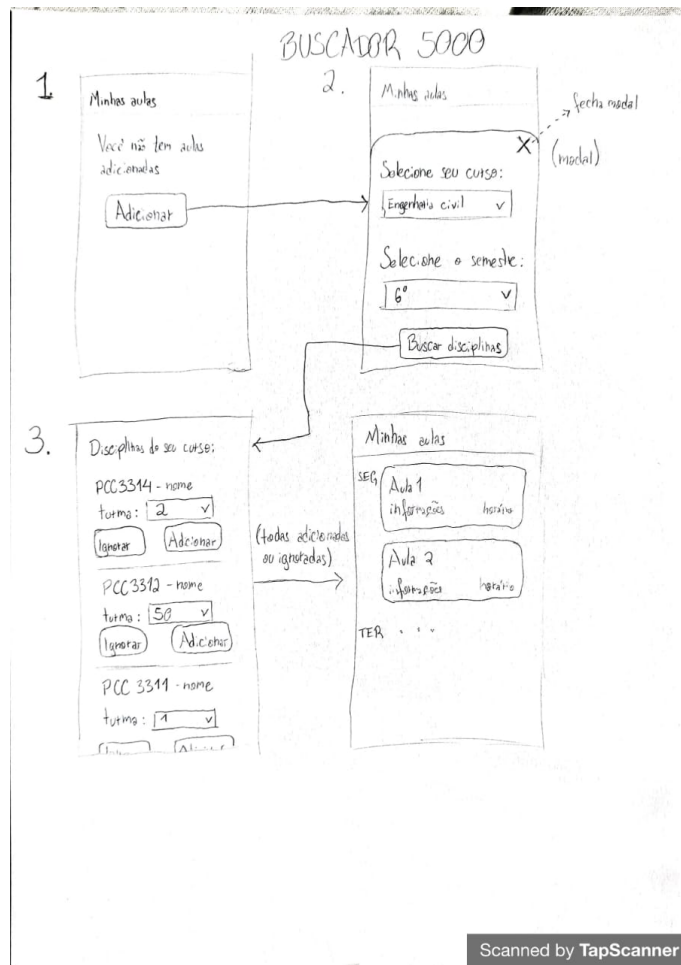 BUSCADOR 5000
1.
Minhas aulas
Você não tem aulas
adicionadas
Adicionar
2.
Minhas aulas
X
fecha modal
(modal)
Selecione seu curso:
Engenharia civil v
Selecione o semestre:
6º v
Buscar disciplinas
3.
Disciplinas do seu curso:
PCC3314 - nome
turma: 2 v
Ignorar Adicionar
PCC3312 - nome
turma: 50 v
Ignorar Adicionar
PCC 3311 - nome
turma: 1 v
(todas adicionadas
ou ignoradas)
Minhas aulas
SEG
Aula 1
informações horário
Aula 2
informações horário
TER . . .
Scanned by TapScanner